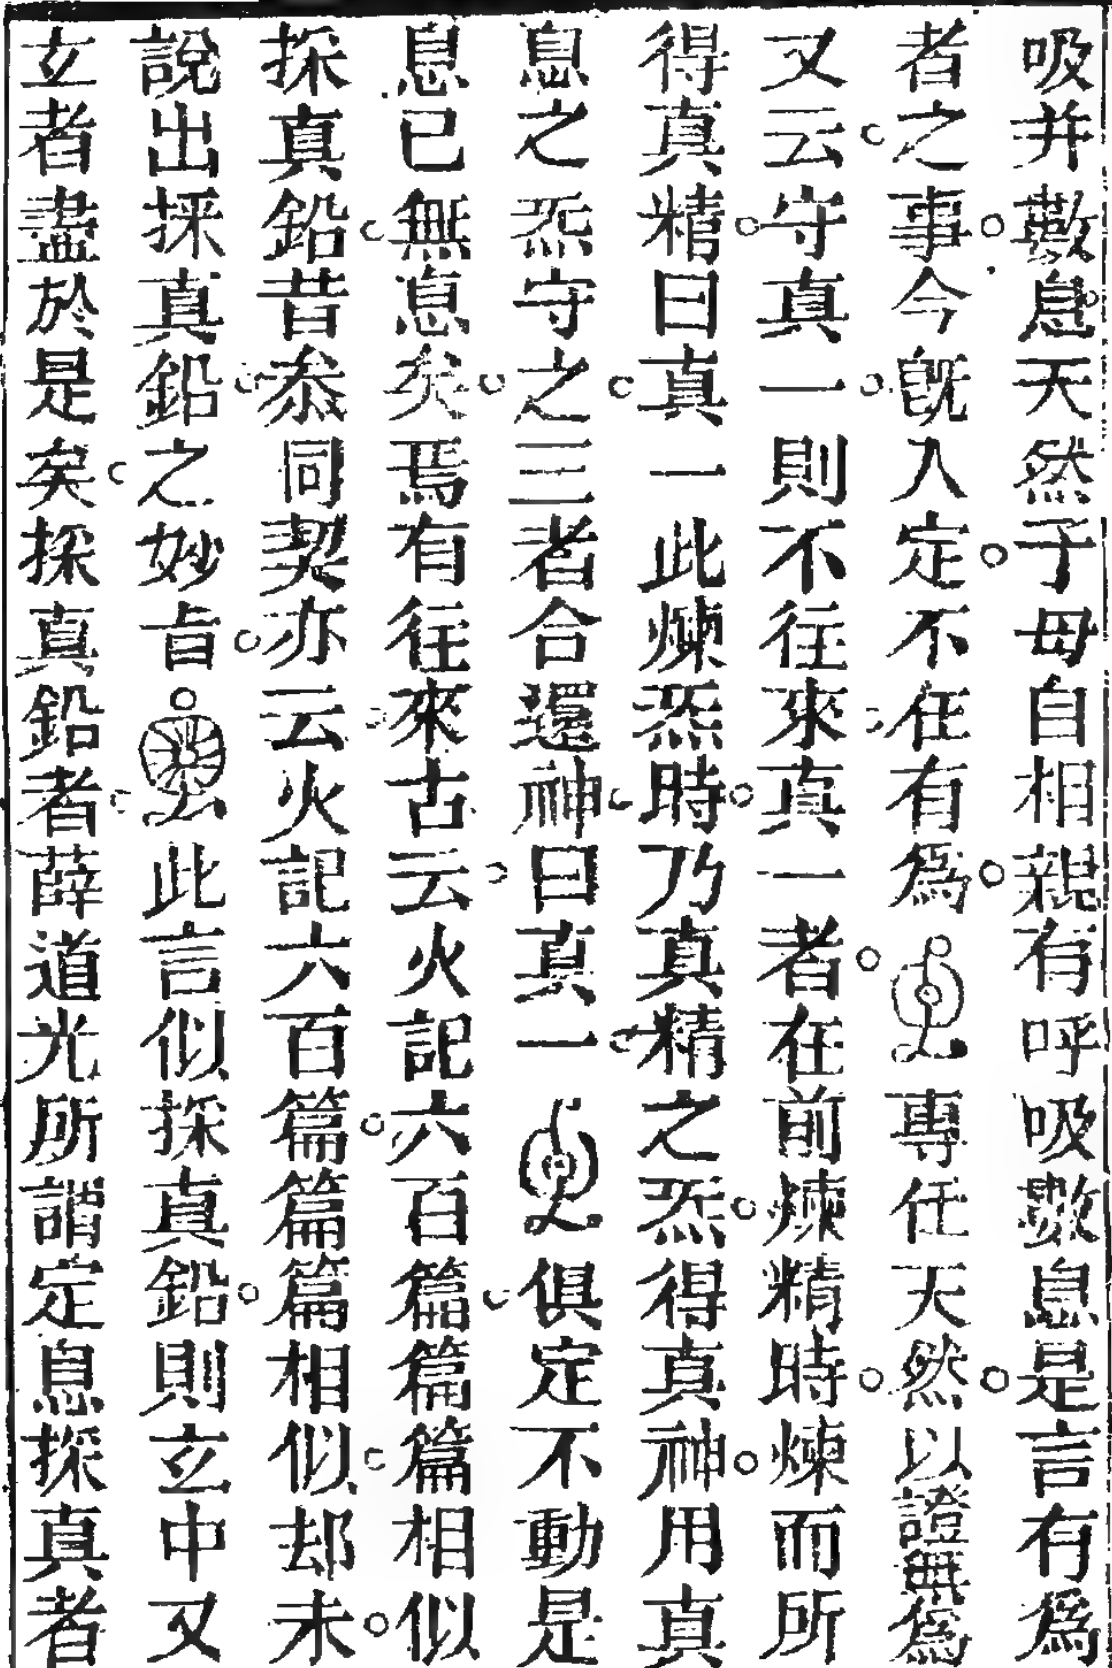 吸并數息天然子母自相親有呼吸數息是言有爲
者之事今旣入定不任有爲專任天然以證無爲
又云守真一則不往來真一者在前煉精時煉而所
得真精曰真一此煉炁時乃真精之炁得真神用真
息之炁守之三者合還神曰真一俱定不動是
息已無息矣焉有往來古云火記六百篇篇篇相似
採真鉛昔叅同契亦云火記六百篇篇篇相似却未
說出採真鉛之妙旨此言似採真鉛則玄中又
玄者盡於是矣採真鉛者薛道光所謂定息採真者